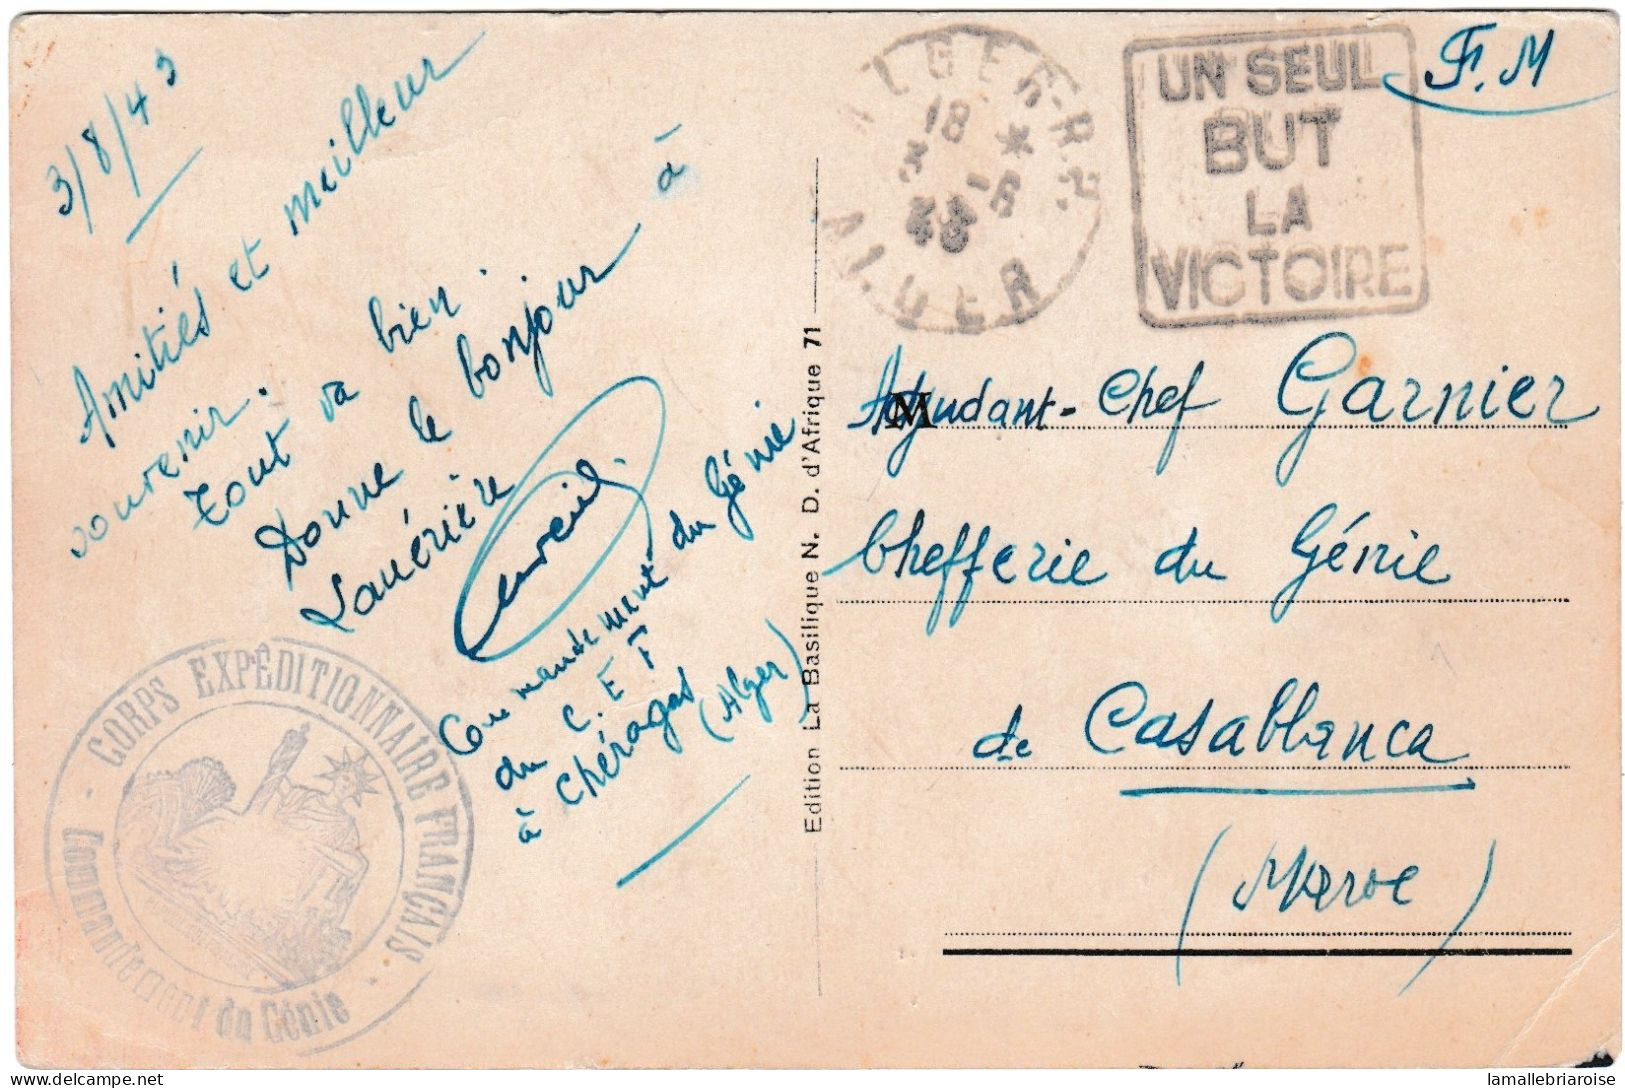 3/8/43
Amitiés et meilleur
souvenir.
Tout va bien.
Donne le bonjour à
Commandement du Génie
du C.E.F
à Chéragas
(Alger)
CORPS EXPÉDITIONNAIRE FRANÇAIS
Commandement du Génie
Edition La Basilique N. D. d'Afrique 71
ALGER-R.P.
18 *
3 -8
43
ALGER
UN SEUL
BUT
LA
VICTOIRE
F.M
M
Adjudant-Chef Garnier
Chefferie du Génie
de Casablanca
(Maroc)
lamallebriaroise